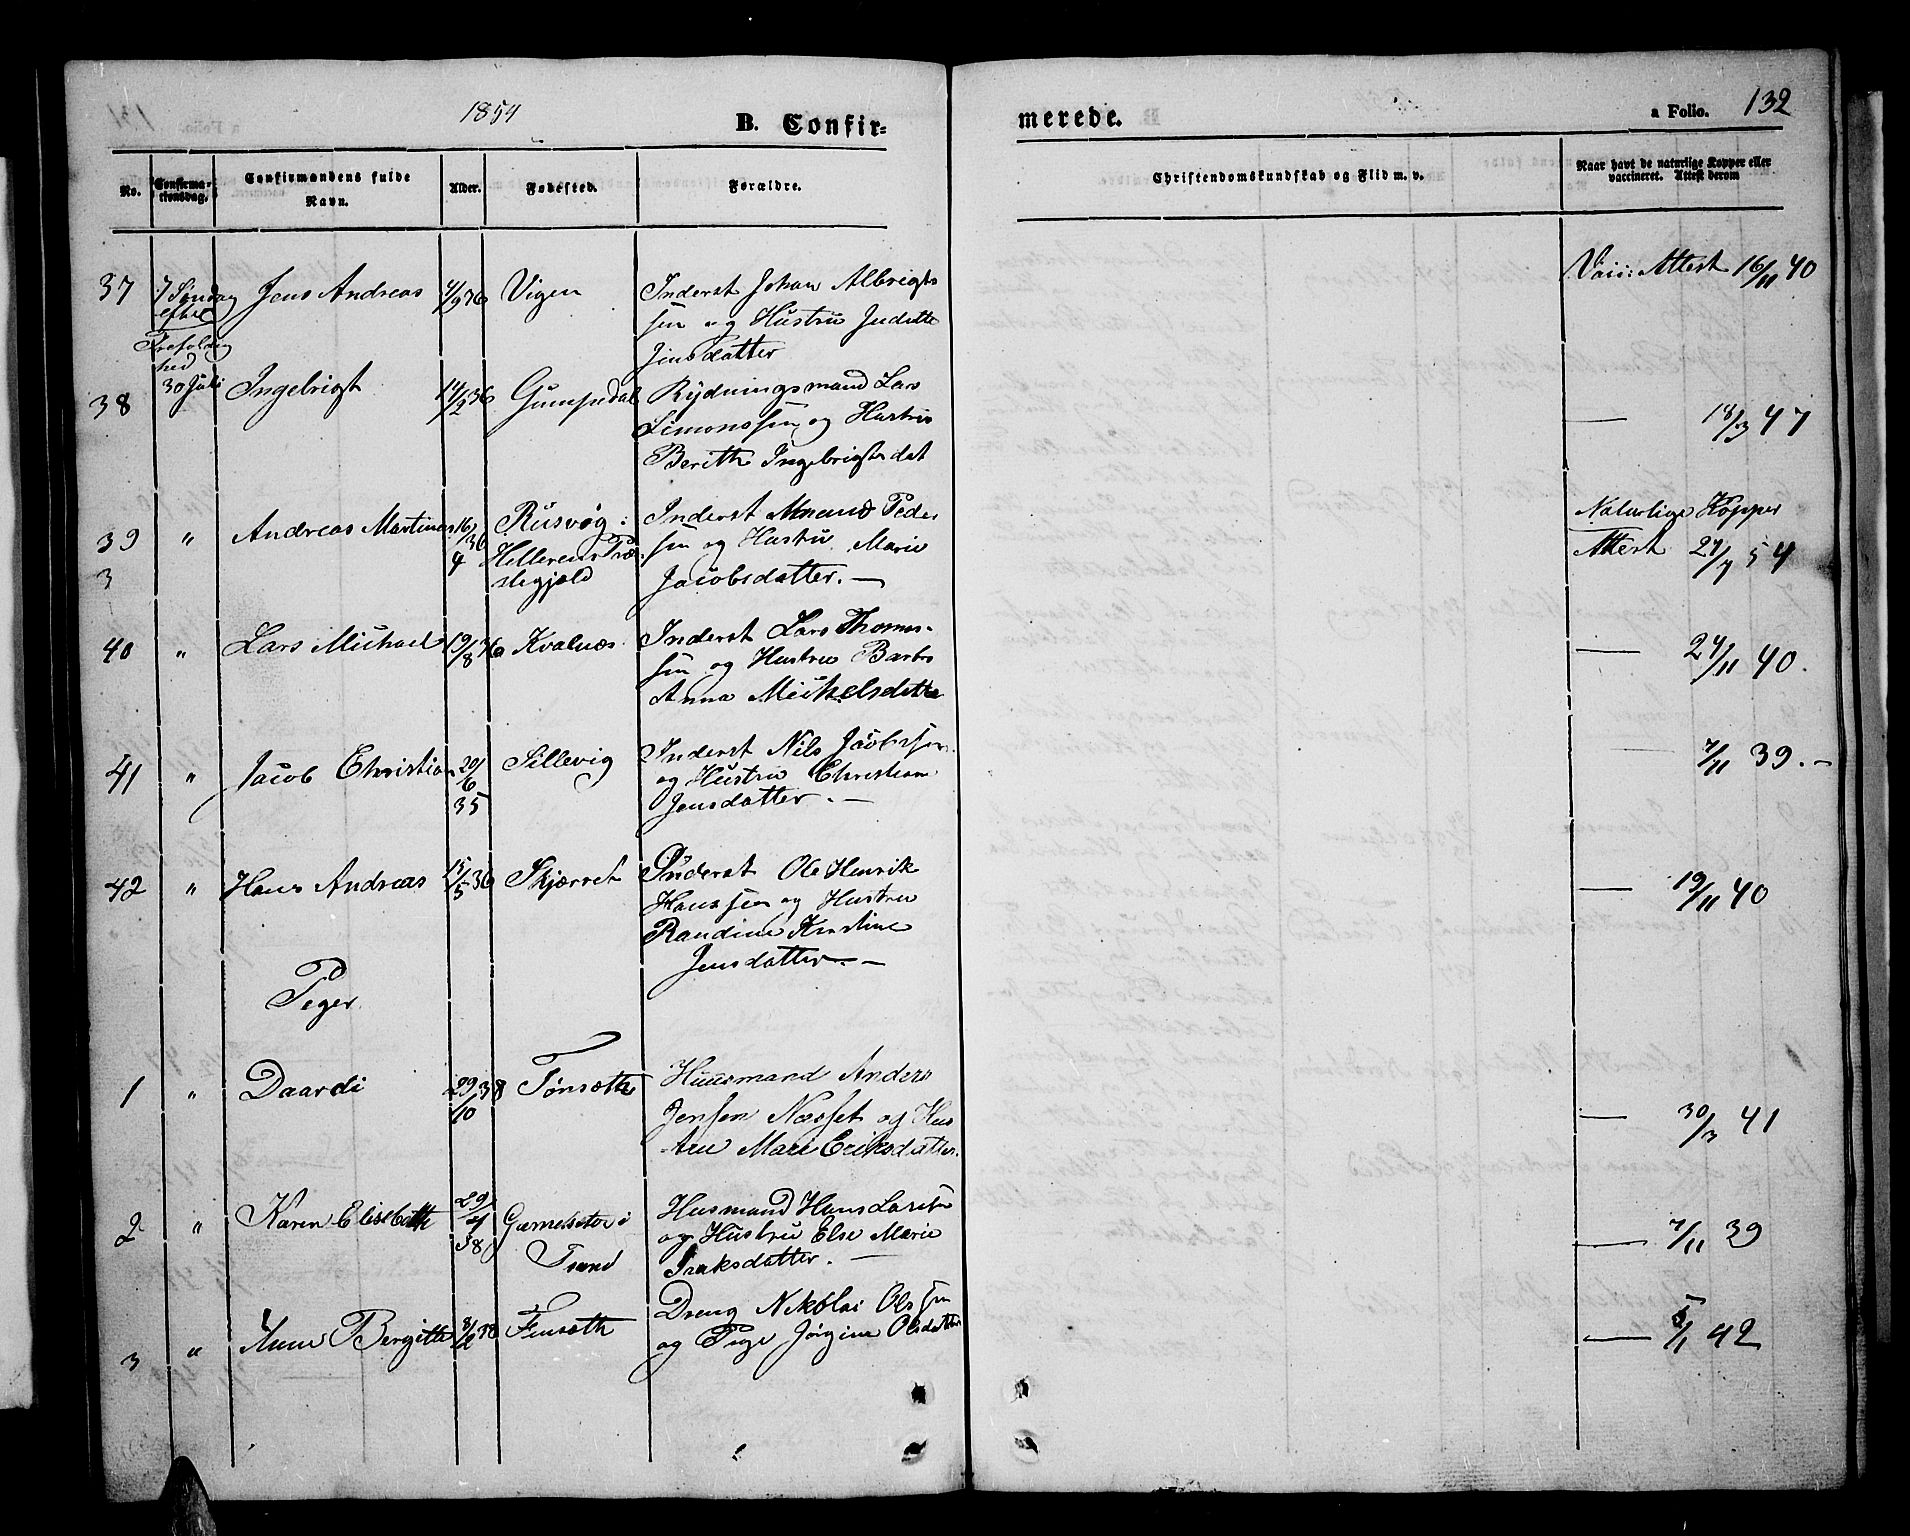 1854
B. Confir=
merede.
a Folio. 132
No.
Confirma-
tionsdag.
Confirmandens fulde
Navn.
Alder.
Fødested.
Forældre.
Christendomskundskab og Flid m. v.
Naar havt de naturlige Kopper eller
vaccineret. Attest derom
37 7 Søndag Jens Andreas 4/9 36 Vigen Inderst Johan Albrigts
efter
sen og Hustru Juditte
Trefoldig
hed
Jensdatter
Attest 16/11 40
38 30 Juli Ingebrigt 14/2 36 Rydningsmand Lars
Simonssen og Hustru
Berith Ingebrigtsdat
— 18/3 47
39 " Andreas Martinus 16/4 36 Rusvøg i Inderst Peder
3
Hillerens Præ
sen og Hustru Marie
stegjæld
Jacobsdatter. —
Naturlige Kopper
Attest 24/7 54
40 " Lars Michael 19/8 36 Kvalnæs Inderst Lars Thomes-
sen og Hustru Barbr
Anna Mickelsdatte
— 24/11 40.
41 " Jacob Christian 20/6 35 Sillevig Inderst Nils Jacobssen
og Hustru Christiane
Jensdatter. —
7/11 39. —
42 " Hans Andreas 15/5 36 Skjærvet Inderst Ole Henrik
Hanssen og Hustru
Randine Kristine
Jensdatter —
— 19/11 40
Piger
1 " Daardi 29/10 38 Tønsæth Huusmand Anders
Jensen Næsset og Hus
tru Mari Eriksdatter.
— 30/3 41
2 " Karen Elisebeth 29/4 38 i Husmand Hans Larsen
Trand
og Hustru Else Marie
Isaksdatter. —
— 7/11 39
3 " Anne Bergitte 8/2 38 Finsæth Dreng Nikolai Olssen
og Pige Jørgine Olsdatter
— 5/1 42